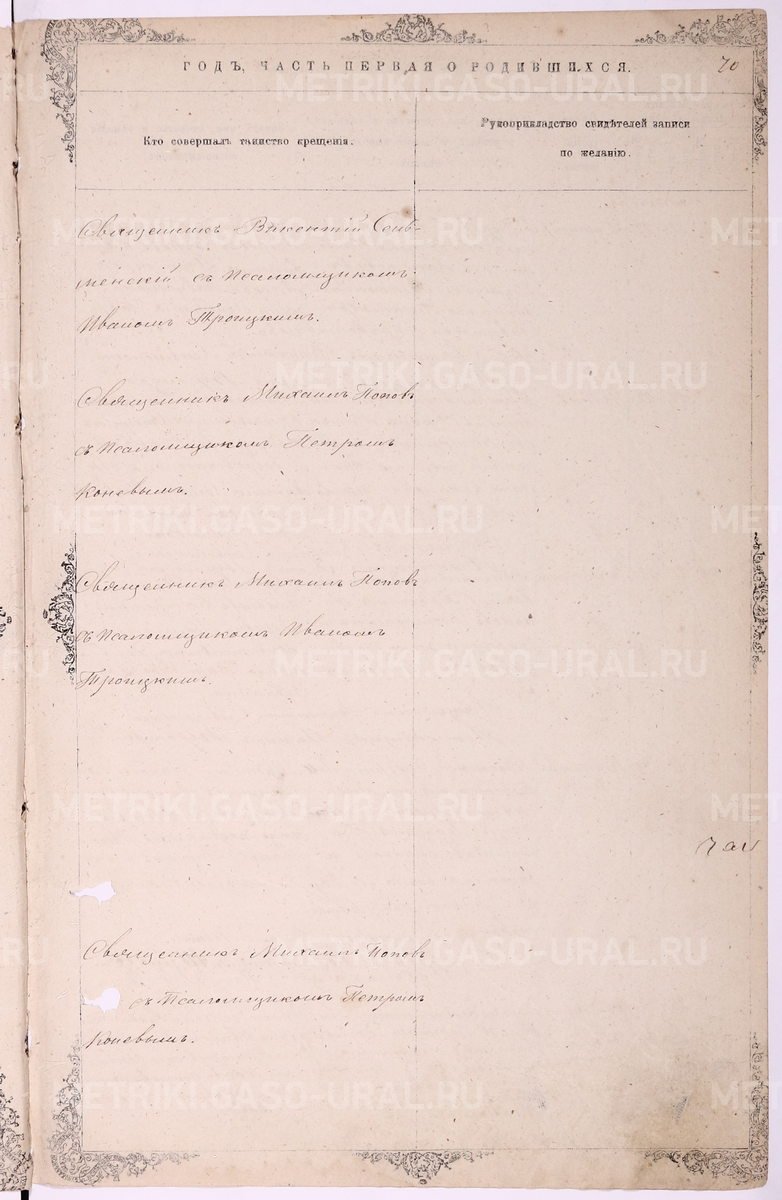 ГОДЪ, ЧАСТЬ ПЕРВАЯ О РОДИВШИХСЯ.
70
Кто совершалъ таинство крещенія.
Рукоприкладство свидѣтелей записи
по желанію.
Священникъ Викентій Сель-
менскій съ Псаломщикомъ
Иваномъ Троицкимъ.
Священникъ Михаилъ Поповъ
съ Псаломщикомъ Петромъ
Коневымъ.
Священникъ Михаилъ Поповъ
съ Псаломщикомъ Иваномъ
Троицкимъ.
Священникъ Михаилъ Поповъ
съ Псаломщикомъ Петромъ
Коневымъ.
METRIKI.GASO-URAL.RU